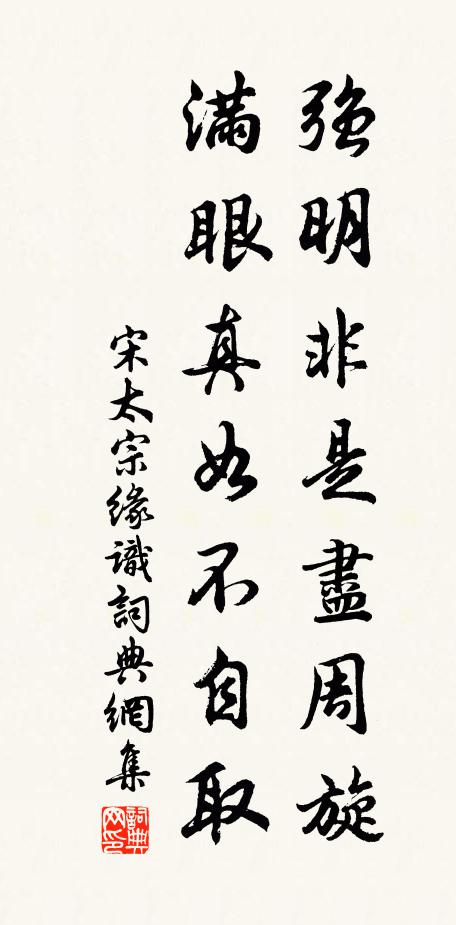 強明非是盡周旋
滿眼真如不自取
宋太宗緣識詞典網集
詞典网印